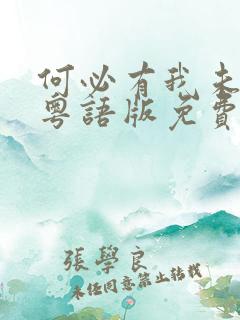 何必有我未
粵語版免費
張學良
未經同意禁止轉載